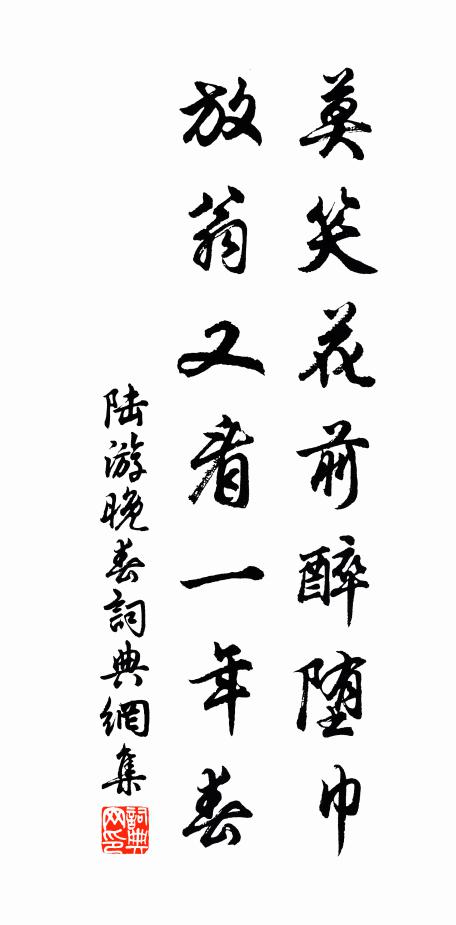 莫笑花前醉堕巾
放翁又看一年春
陆游晚春詞典網集
詞典网印